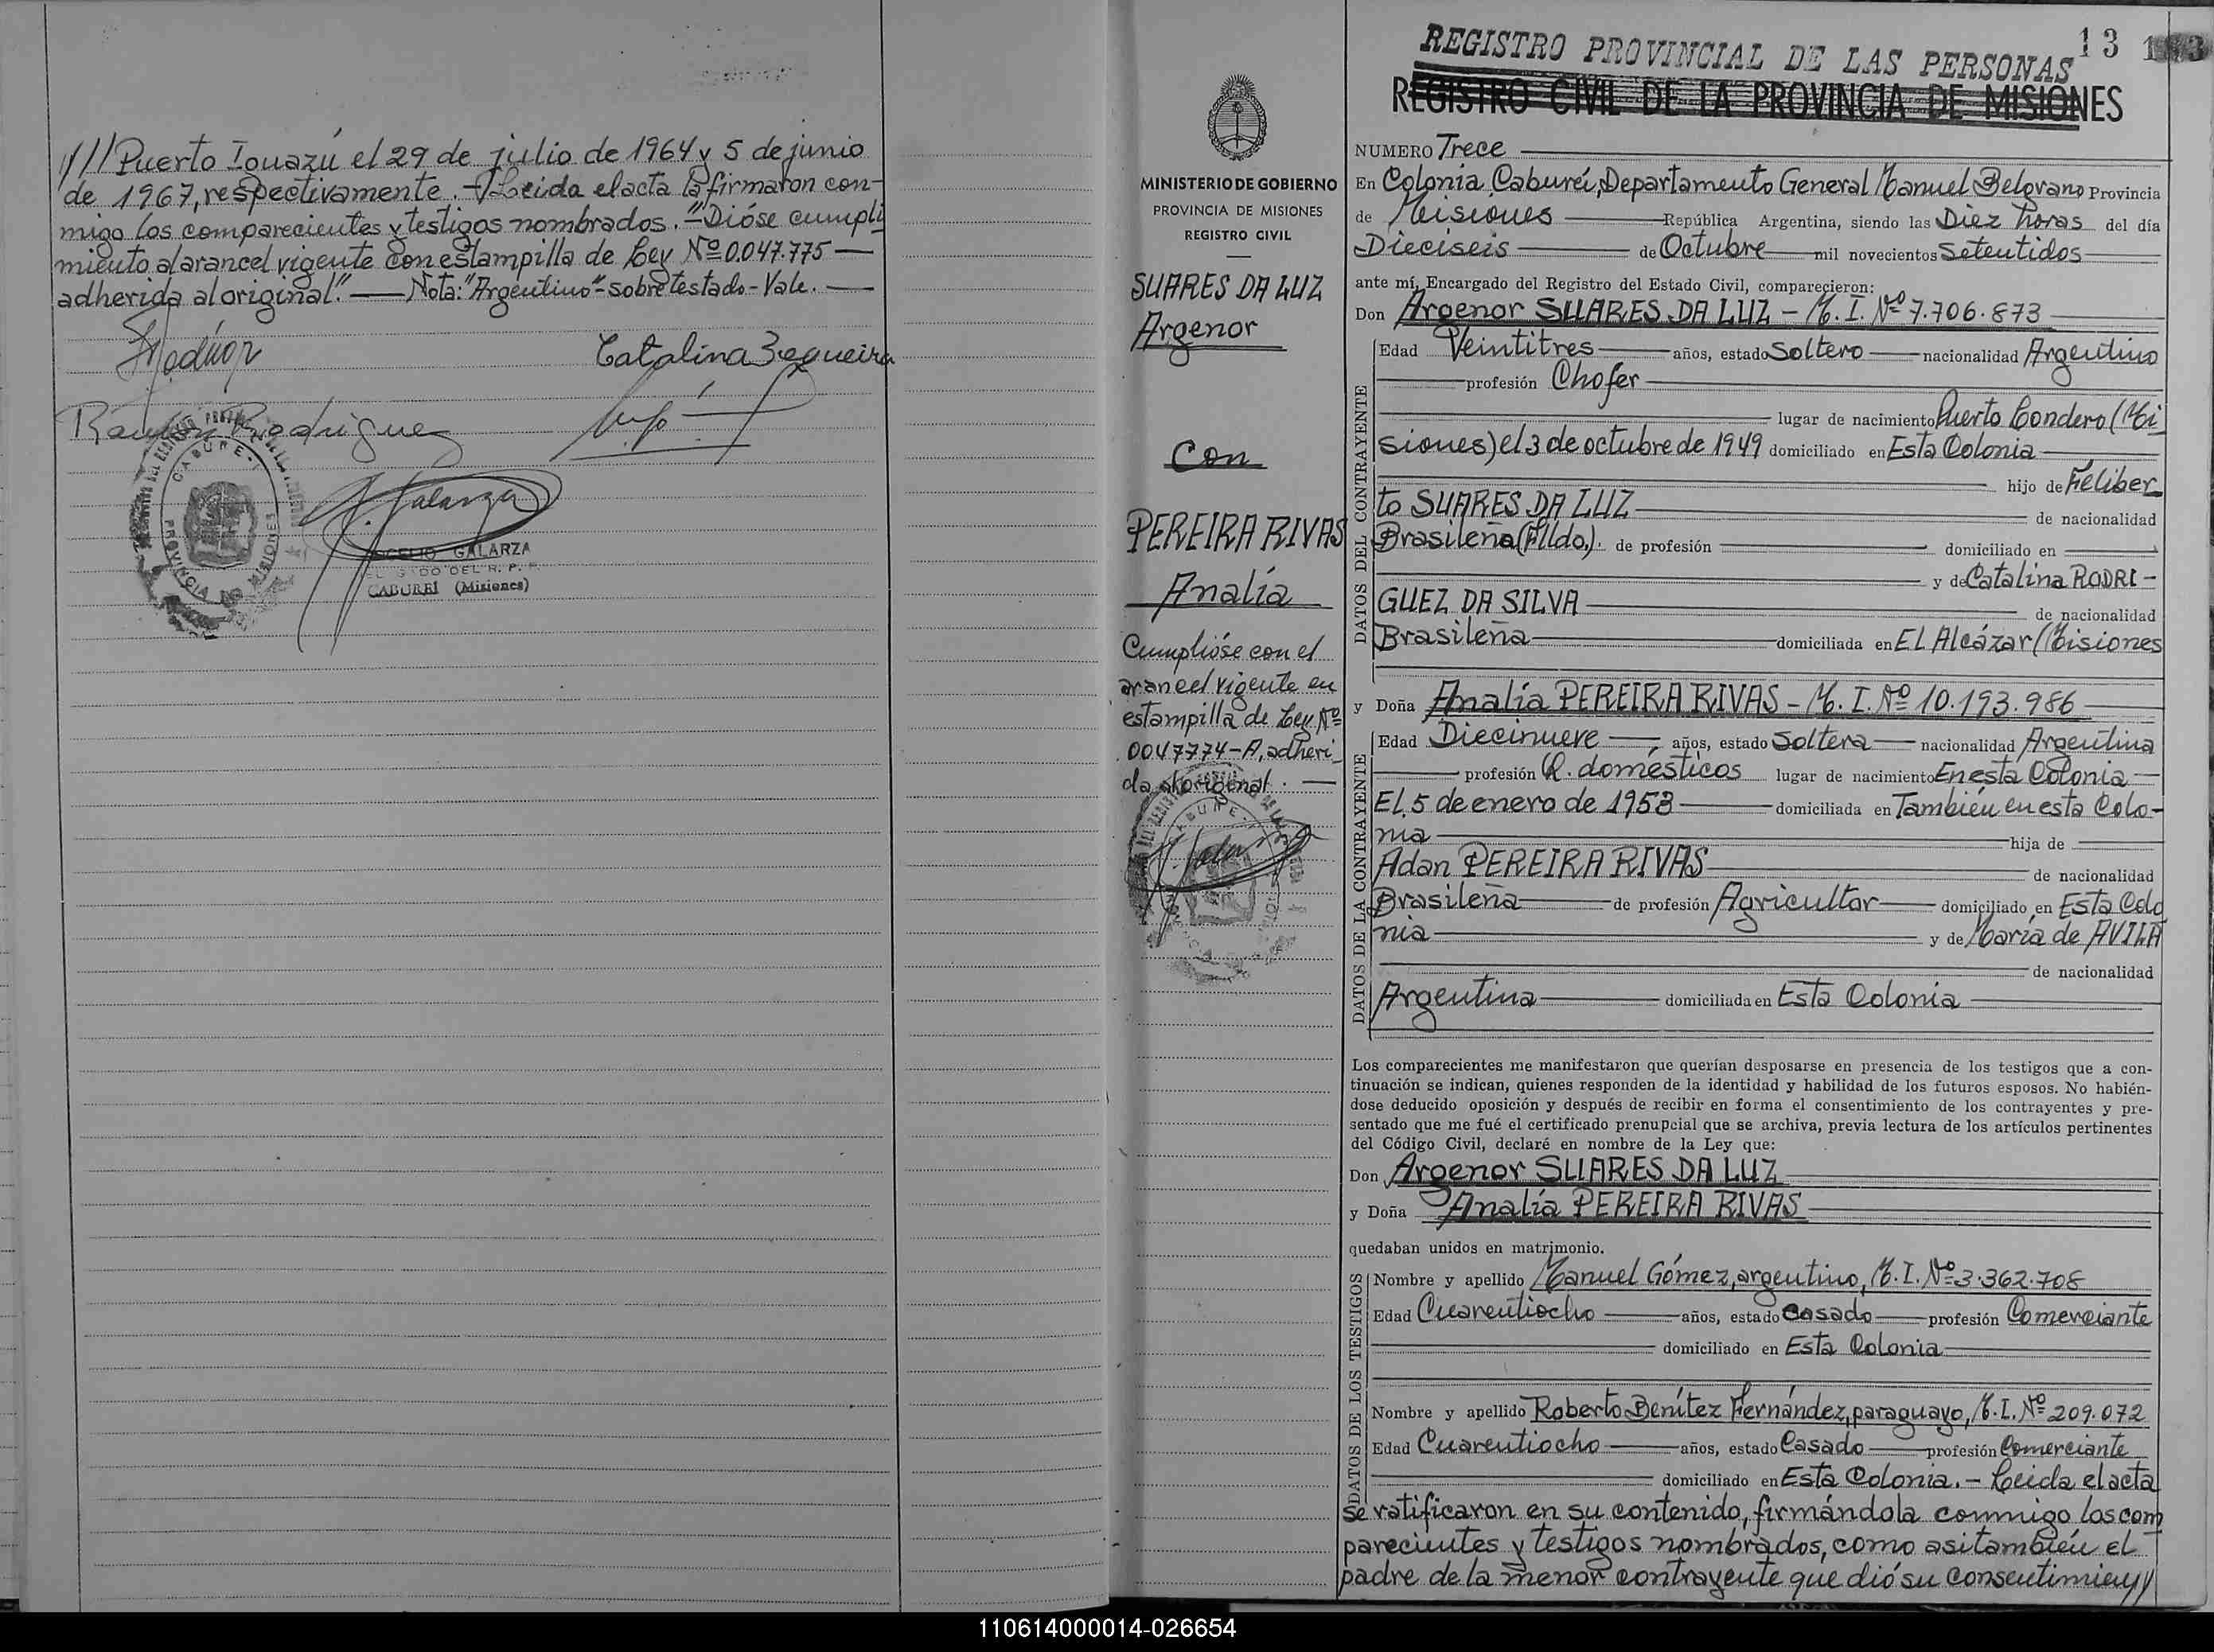 /// Puerto Iguazú el 29 de julio de 1964 y 5 de junio
de 1967, respectivamente. - Leida el acta la firmaron con-
migo los comparecientes y testigos nombrados. "Dióse cumpli
miento al arancel vigente con estampilla de Ley Nº 0.047.775 —
adherida al original." — Nota: "Argentino" - sobretestado - Vale. —
Catalina Sequeira
Ramón Rodriguez
J. Galarza
GALARZA
CABUREÍ (Misiones)
CABURE-
PROVINCIA DE MISIONES
MINISTERIO DE GOBIERNO
PROVINCIA DE MISIONES
REGISTRO CIVIL
SUARES DA LUZ
Argenor
Con
PEREIRA RIVAS
Analía
Cumplióse con el
arancel vigente en
estampilla de Ley Nº
0047774-A, adheri
da al original. —
REGISTRO PROVINCIAL DE LAS PERSONAS
13
REGISTRO CIVIL DE LA PROVINCIA DE MISIONES
NUMERO Trece
En Colonia Cabureí, Departamento General Manuel Belgrano Provincia
de Misiones República Argentina, siendo las Diez horas del día
Dieciseis de Octubre mil novecientos Setentidos
ante mí, Encargado del Registro del Estado Civil, comparecieron:
Don Argenor SUARES DA LUZ - M. I. Nº 7.706.873
DATOS DEL CONTRAYENTE
Edad Veintitres años, estado Soltero nacionalidad Argentino
profesión Chofer
lugar de nacimiento Puerto Londero (Mi
siones) el 3 de octubre de 1949 domiciliado en Esta Colonia
hijo de Feliber
to SUARES DA LUZ de nacionalidad
Brasileña (Flldo.). de profesión domiciliado en
y de Catalina RODRI-
GUEZ DA SILVA de nacionalidad
Brasileña domiciliada en El Alcázar (Misiones
y Doña Analía PEREIRA RIVAS - M. I. Nº 10.193.986
DATOS DE LA CONTRAYENTE
Edad Diecinueve años, estado Soltera nacionalidad Argentina
profesión Q. domésticos lugar de nacimiento En esta Colonia
El 5 de enero de 1953 domiciliada en También en esta Colo-
nia hija de
Adan PEREIRA RIVAS de nacionalidad
Brasileña de profesión Agricultor domiciliado en Esta Colo
nia y de María de AVILA
de nacionalidad
Argentina domiciliada en Esta Colonia
Los comparecientes me manifestaron que querían desposarse en presencia de los testigos que a con-
tinuación se indican, quienes responden de la identidad y habilidad de los futuros esposos. No habién-
dose deducido oposición y después de recibir en forma el consentimiento de los contrayentes y pre-
sentado que me fué el certificado prenupcial que se archiva, previa lectura de los artículos pertinentes
del Código Civil, declaré en nombre de la Ley que:
Don Argenor SUARES DA LUZ
y Doña Analía PEREIRA RIVAS
quedaban unidos en matrimonio.
DATOS DE LOS TESTIGOS
Nombre y apellido Manuel Gómez, argentino, M. I. Nº 3.362.708
Edad Cuarentiocho años, estado Casado profesión Comerciante
domiciliado en Esta Colonia
Nombre y apellido Roberto Benítez Fernández, paraguayo, M. I. Nº 209.072
Edad Cuarentiocho años, estado Casado profesión Comerciante
domiciliado en Esta Colonia. - Leida el acta
se ratificaron en su contenido, firmándola conmigo los com
parecientes y testigos nombrados, como asi también el
padre de la menor contrayente que dió su consentimien//
110614000014-026654